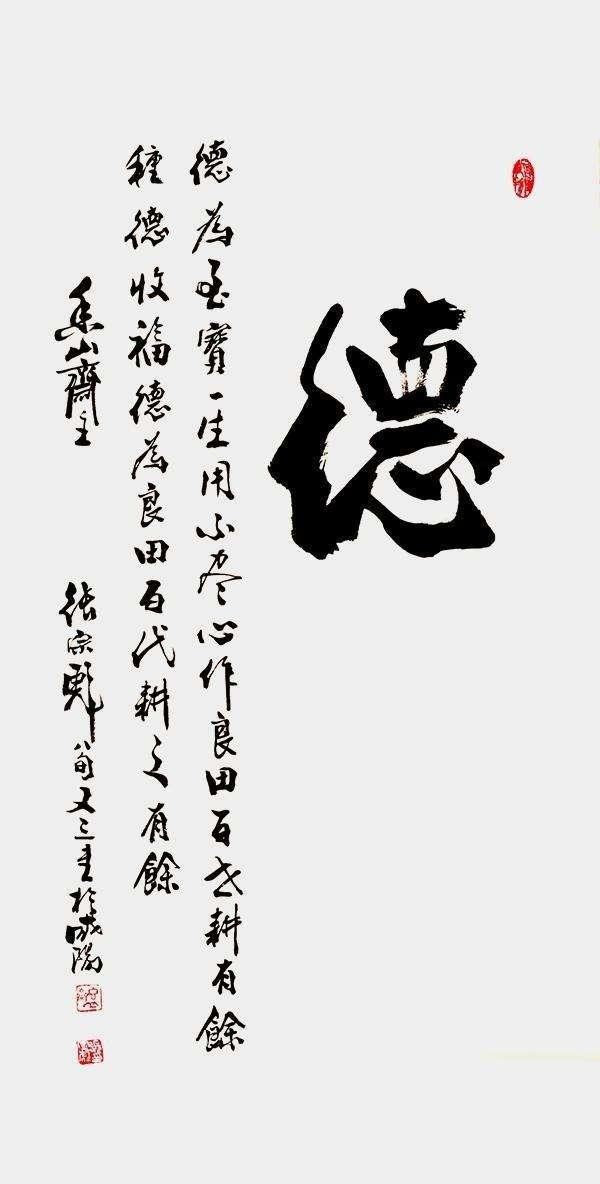 德
德為至寶一生用不尽心作良田百世耕有餘
種德收福德為良田百代耕之有餘
山齋主 張宗 八旬又三書於咸陽